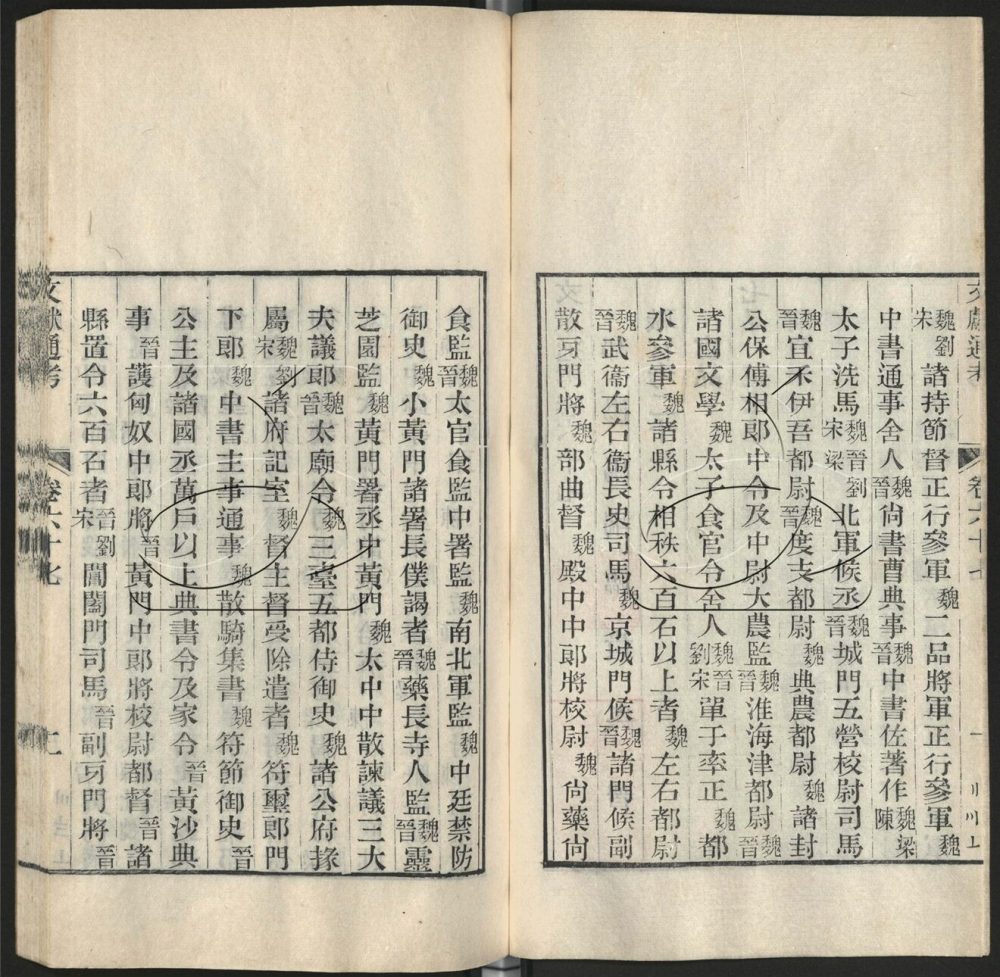 魏劉宋諸持節督正行參軍魏二品將軍正行參軍魏
中書通事舍人魏晉尚書曹典事魏晉中書佐著作魏梁陳
太子洗馬魏晉劉宋梁北軍候丞魏晉城門五營校尉司馬
魏晉宜禾伊吾都尉魏晉度支都尉魏典農都尉魏諸封
公保傅相郎中令及中尉大農監魏晉淮海津都尉魏晉
諸國文學魏太子食官令舍人魏晉劉宋單于率正魏都
水參軍魏諸縣令相秩六百石以上者魏左右都尉
魏晉武衞左右衞長史司馬魏京城門候魏晉諸門候副
散牙門將魏部曲督魏殿中中郎將校尉魏尚藥尚
食監魏晉太官食監中署監魏南北軍監魏中廷禁防
御史魏小黃門諸署長僕謁者魏晉藥長寺人監魏晉靈
芝園監魏黃門署丞中黃門魏太中中散諫議三大
夫議郎魏晉太廟令魏三臺五都侍御史魏諸公府掾
屬魏劉宋諸府記室魏督主督受除遣者魏符璽郎門
下郎魏中書主事通事魏散騎集書魏符節御史晉
公主及諸國丞萬戶以上典書令及家令晉黃沙典
事晉護匈奴中郎將晉黃門中郎將校尉都督晉諸
縣置令六百石者晉劉宋閶闔門司馬晉副牙門將晉
文獻通考
卷六十七
二